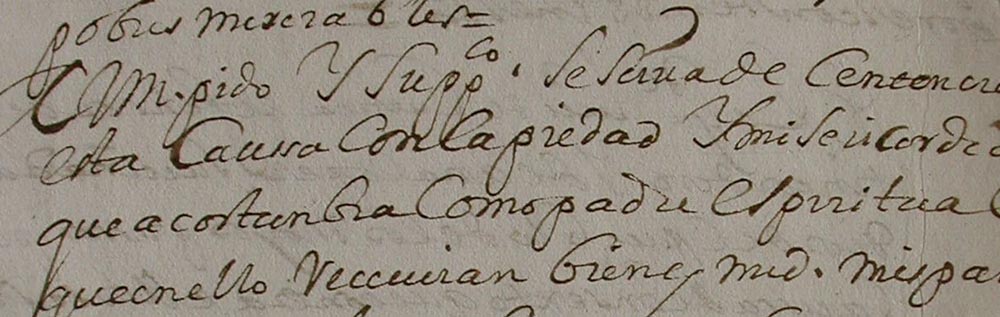 pobres miserables=
A Vm. pido Y Suppco. Se Sirva de Centenci
esta Caussa Con la piedad Y misericordia
que acostunbra Como padre espiritual
que en ello Reccuiran bien y md. mis pa